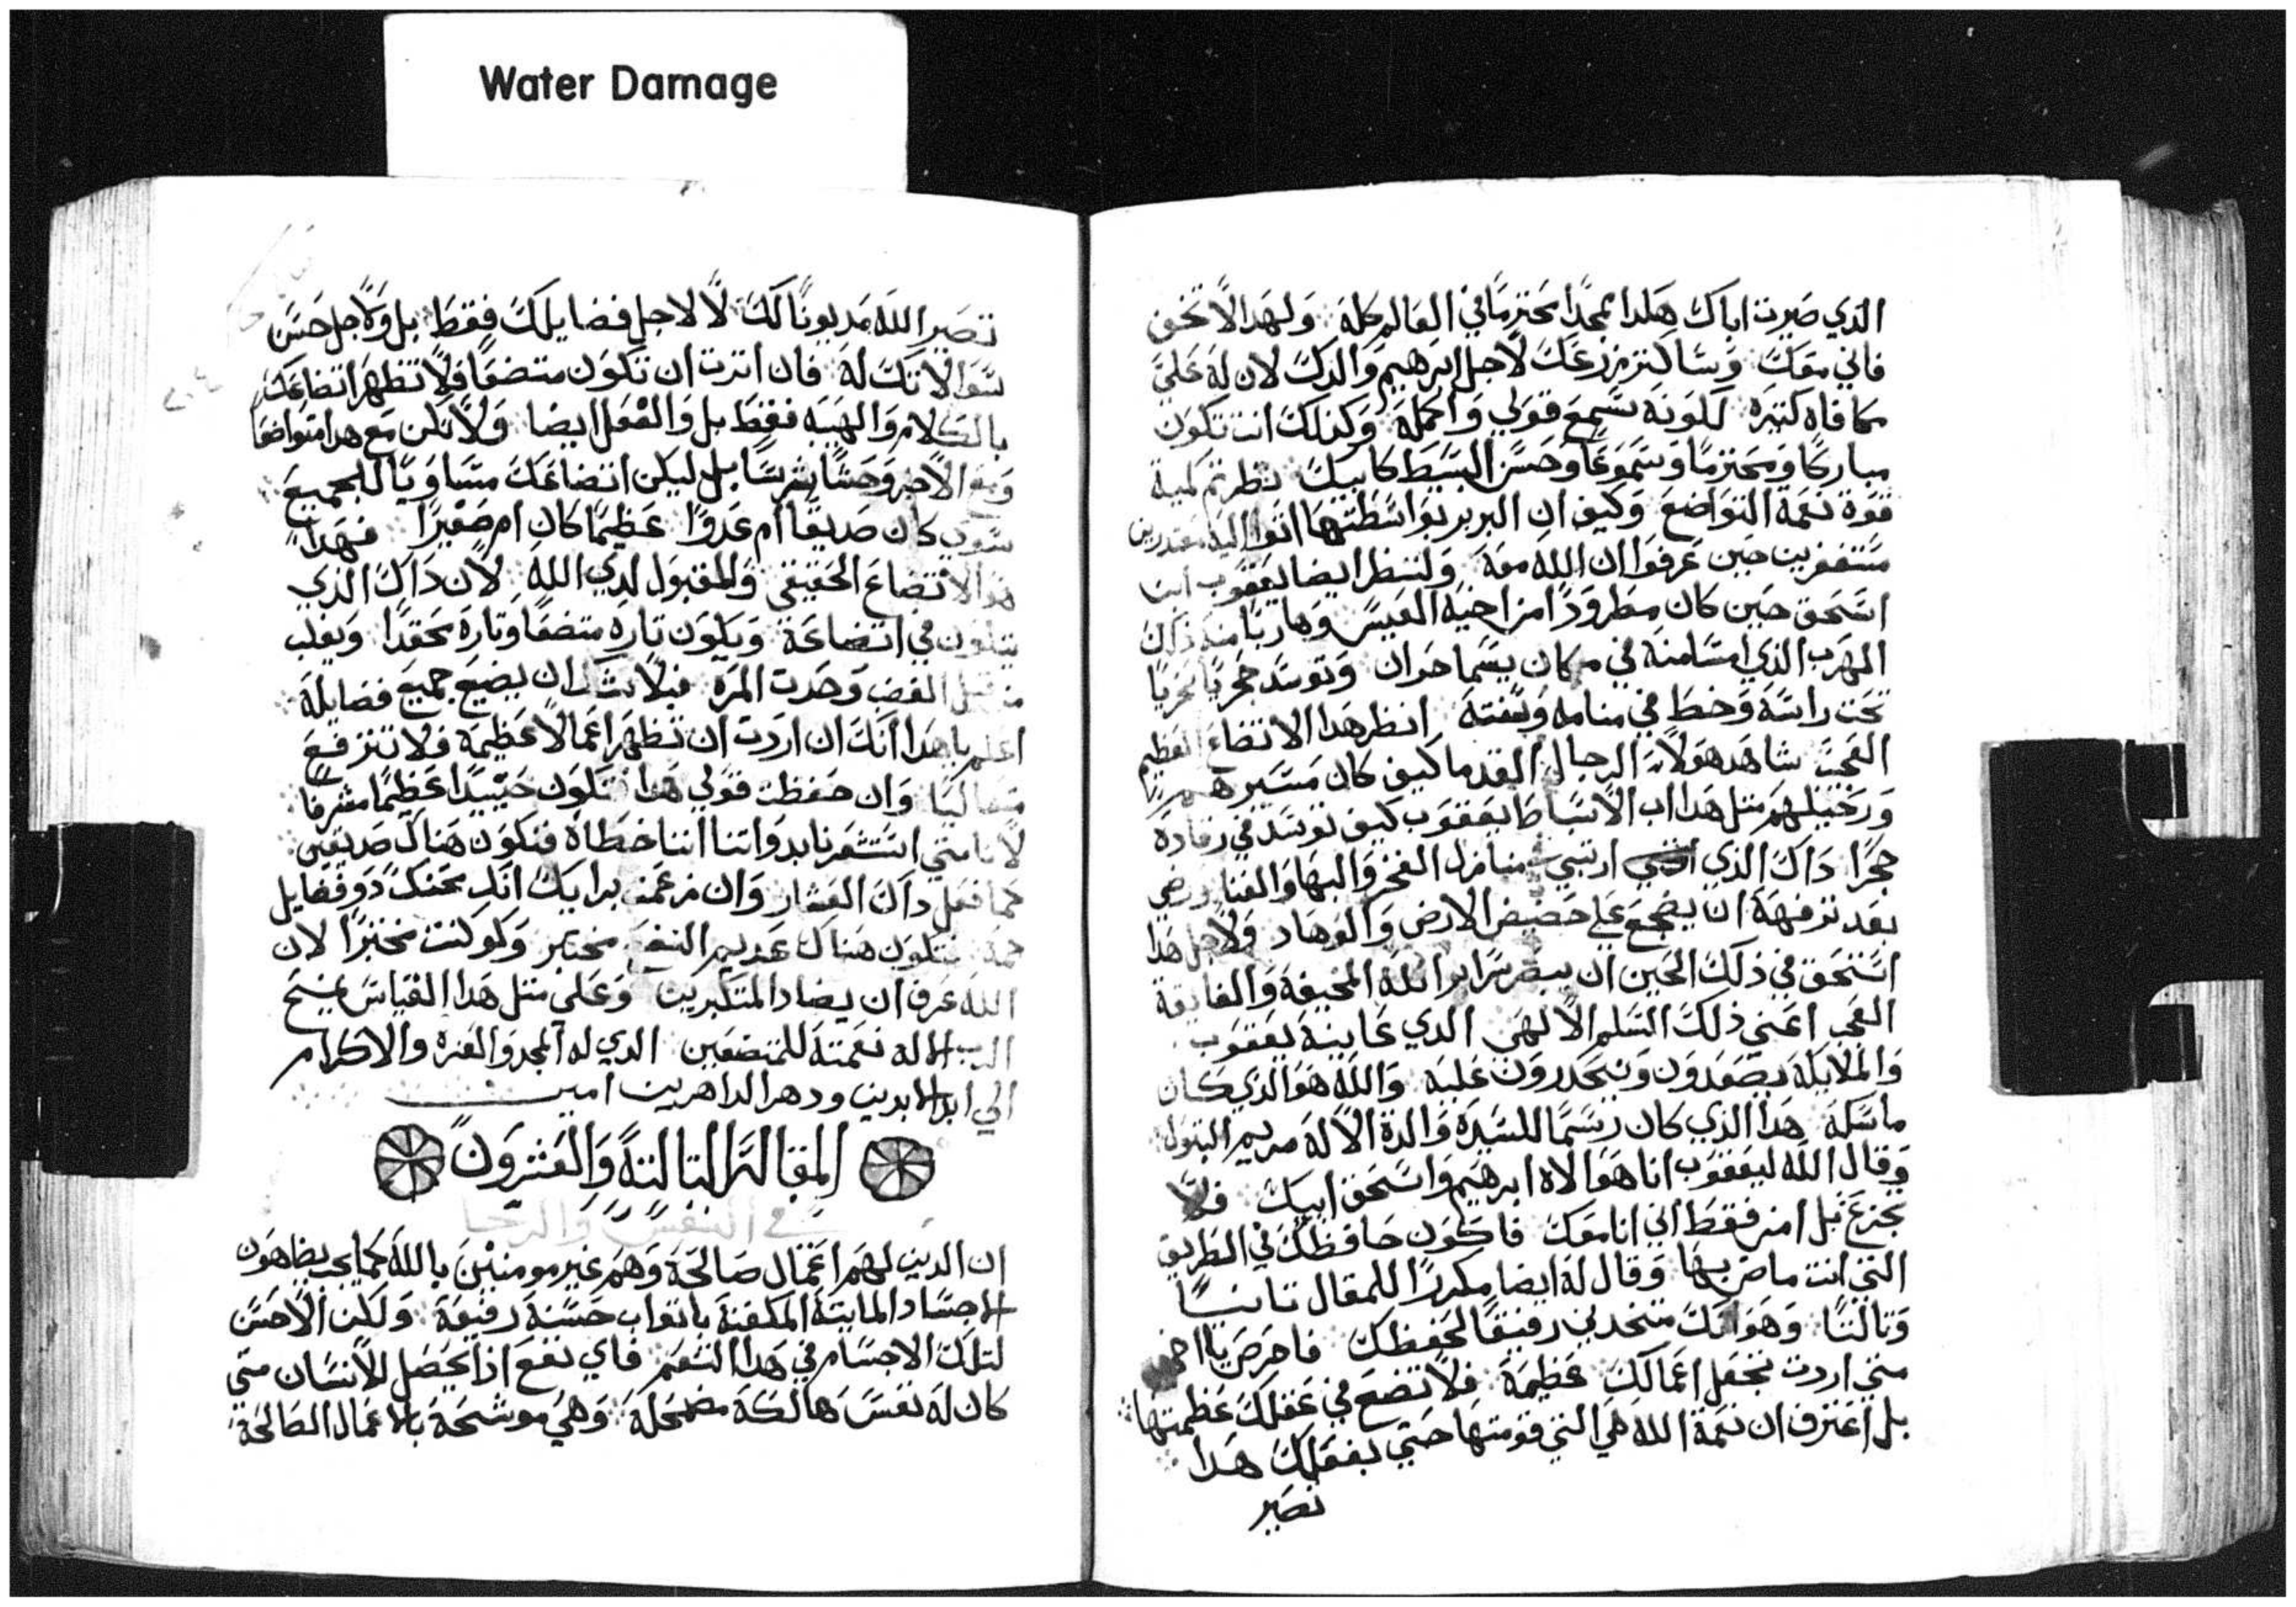 Water Damage
الذي صيرت اباك هكدا ممجدًا محترمًا في العالم كله ولهدا لا تخف
فاني معك وساكثر زرعك لاجل ابرهيم والدك لان له علي
مكافاه كثيره لكونه سمع قولي واكمله وكذلك انت تكون
مباركًا ومحترمًا وسموعًا وحسن البسيط كابيك نظرتم كمية
قوة نعمة التواضع وكيف ان البربر بواسطتها اتوا اليه معتدرين
مستغفرين حين عرفوا ان الله معه ولننظر ايضا يعقوب ابن
اسحق حين كان مطرودًا من اخيه العيس وهاربًا منه ذاك
المهرب الذي امسا منه في مكان يسما حوران وتوسد حجريًا بحريًا
تحت راسه وخط في منامه وسنته انظر هدا الاتضاع العظيم
العجب شاهد هولاء الرجال القدما كيف كان مسيرهم
ورحيلهم مثل هدا اب الاسباط يعقوب كيف توسد في رقاده
حجرًا داك الذي ارتبي في منازل الفخر والبها والغنا ورضي
بعد ترفهه ان يضجع علي حضيض الارض والوهاد ولاجل هدا
استحق في ذلك الحين ان يبصر سراير الله المخيفة والفايقة
العجب اعني ذلك السلم الالهي الدي عاينه يعقوب
والملايكه يصعدون وينحدرون عليه والله هو الذي كان
ماسكه هدا الذي كان رسمًا للسيدة والدة الاله مريم البتول
وقال الله ليعقوب انا هو الاه ابرهيم واسحق ابيك فلا
تجزع بل امن فقط اني انا معك فاكون حافظك في الطريق
التي انت ماض بها وقال له ايضا مكررًا للمقال تانيـــًا
وتالتًا وهو انك متخدني رفيقًا لحفظك فاحرص يا اخي
متي اردت تجعل اعمالك عظيمة فلا تضع في عقلك عظمتها
بل اعترف ان نعمة الله هي التي قومتها حتي بفعلك هدا
تصير
تصير الله مديونًا لك لا لاجل فضايلك فقط بل ولاجل حسن
سوالاتك له فان اترت ان تكون متضعًا فلا تظهر اتضاعك
بالكلام والهيه فقط بل والفعل ايضا ولا تكن مع هدا متواضعًا
ومع الاخر وحشًا شرسًا بل ليكن اتضاعك مساويًا للجميع
سوي كان صديقًا ام عدوًا عظيمًا كان ام صغيرًا فهدا
هو الاتضاع الحقيقي والمقبول لدي الله لان داك الذي
يتلون في اتضاعه ويكون تاره متضعًا وتارة محقدًا ويغلب
من قبل الغضب وحدت المره فبلا شك ان يضيع جميع فضايله
اعلم يا هدا انك ان اردت ان تظهر اعمالاً عظيمة فلا تترفع
متعاليًا وان حفظت قولي هدا فتكون حينيدًا عظيمًا مشرفًا
لانا متي استشعرنا بدواتنا اننا خطاة فنكون هناك صديقين
كما فعل داك العشار وان زعمت برايك انك محنك دو فضايل
جمة فتكون هناك عديم النفع مختبر ولو كنت مختبرًا لان
الله عرف ان يضاد المتكبرين وعلي متل هدا القياس يمنح
الرب الاله نعمته للمتضعين الدي له المجد والعزه والاكرام
الي ابد الابدين ودهر الداهرين امين
المقالة التالتة والعشرون
في النفس والرجا
ان الدين لهم اعمال صالحة وهم غير مومنين بالله كما يجب يضاهون
الاجساد المايتة المكفنة باتواب حسنة رفيعة ولكن لا احس
لتلك الاجسام في هدا التنعم فاي نفع ادا يحصل للانسان متي
كان له نفس هالكة مضمحلة وهي موشحة بالاعمال الصالحة